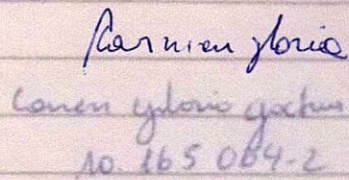 Carmen gloria
Carmen gloria
10.165 064-2